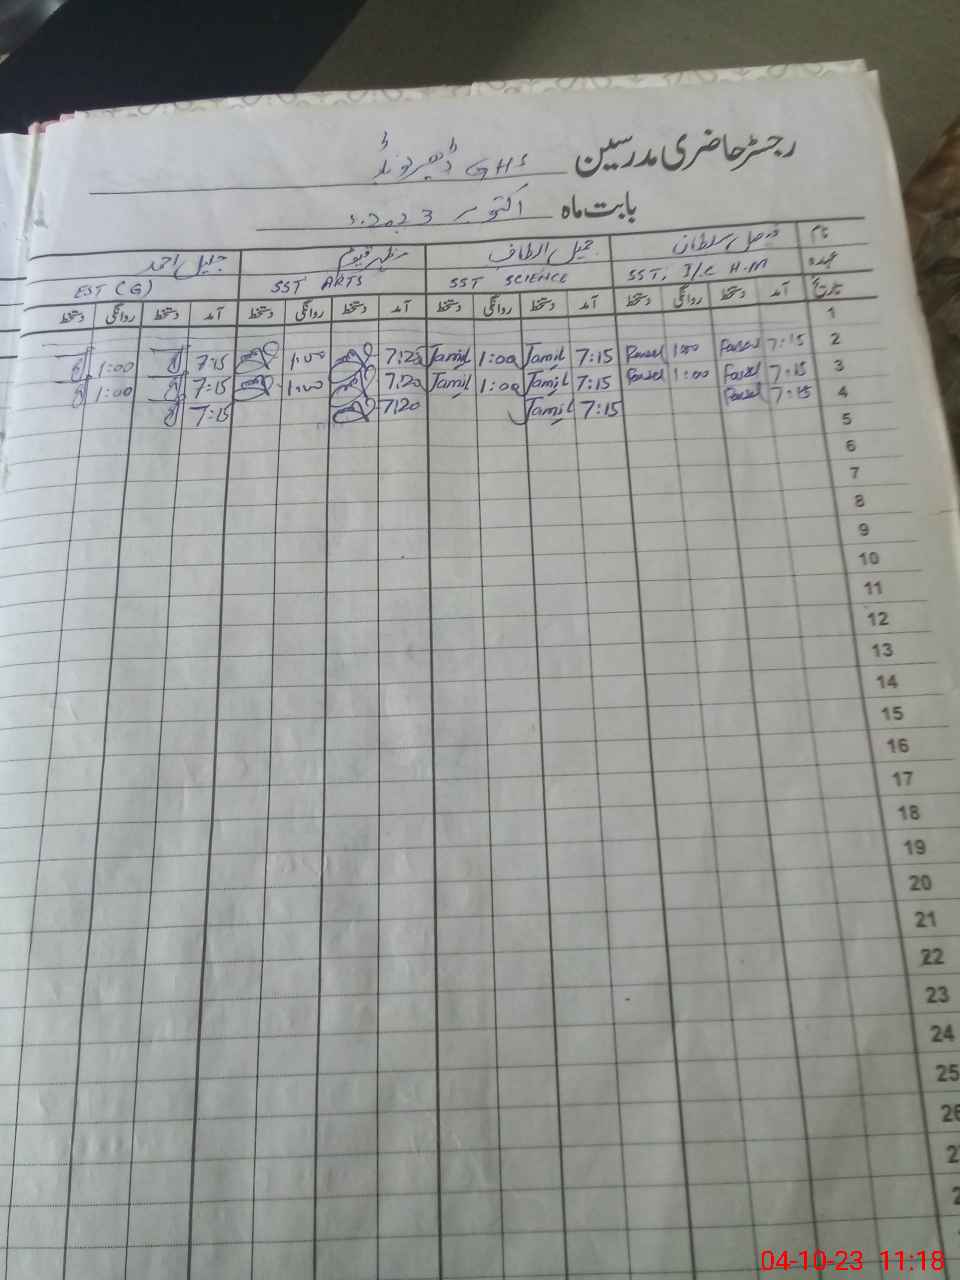 رجسٹر حاضری مدرسین GHS
بابت ماہ اکتوبر 2023ء
نام فیصل سلطان جمیل الطاف جلیل احمد
عہدہ SST, I/C H.M SST SCIENCE SST ARTS EST (G)
تاریخ آمد دستخط روانگی دستخط آمد دستخط روانگی دستخط آمد دستخط روانگی دستخط آمد دستخط روانگی دستخط
1
2 7:15 Faisal 1:00 Faisal 7:15 Jamil 1:00 Jamil 7:20 1:00 7:15 1:00
3 7:15 Faisal 1:00 Faisal 7:15 Jamil 1:00 Jamil 7:20 1:00 7:15 1:00
4 7:15 Faisal 7:15 Jamil 7:20 7:15
5
6
7
8
9
10
11
12
13
14
15
16
17
18
19
20
21
22
23
24
25
26
04-10-23 11:18